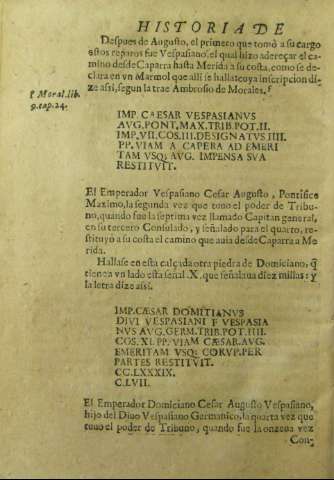 HISTORIA DE
Despues de Augusto, el primero que tomó a su cargo
estos reparos fue Vespasiano, el qual hizo adereçar el ca-
mino desde Caparra hasta Merida a su costa, como se de-
clara en vn Marmol que alli se halla, cuya inscripcion di-
ze assi, segun la trae Ambrosio de Morales. f
f Moral. lib.
9. cap. 24.
IMP. CAESAR VESPASIANVS
AVG. PONT. MAX. TRIB. POT. II.
IMP. VII. COS. III. DESIGNATVS IIII.
PP. VIAM A CAPERA AD EMERI
TAM VSQ; AVG. IMPENSA SVA
RESTITVIT.
El Emperador Vespasiano Cesar Augusto, Pontifice
Maximo, la segunda vez que tuuo el poder de Tribu-
no, quando fue la septima vez llamado Capitan general,
en su tercero Consulado, y señalado para el quarto, res-
tituyó a su costa el camino que auia desde Caparra a Me
rida.
Hallase en esta calçada otra piedra de Domiciano, q̃
tiene a vn lado esta señal .X. que señalaua diez millas: y
la letra dize assi.
IMP. CÆSAR DOMITIANVS
DIVI VESPASIANI F VESPASIA
NVS AVG. GERM. TRIB. POT. IIII.
COS. XI. PP. VIAM CÆSAR. AVG.
EMERITAM VSQ; CORVP. PER
PARTES RESTITVIT.
CG. LXXXIX.
C. LVII.
El Emperador Domiciano Cesar Augusto Vespasiano,
hijo del Diuo Vespasiano Germanico, la quarta vez que
tuuo el poder de Tribuno, quando fue la onzena vez
Con-